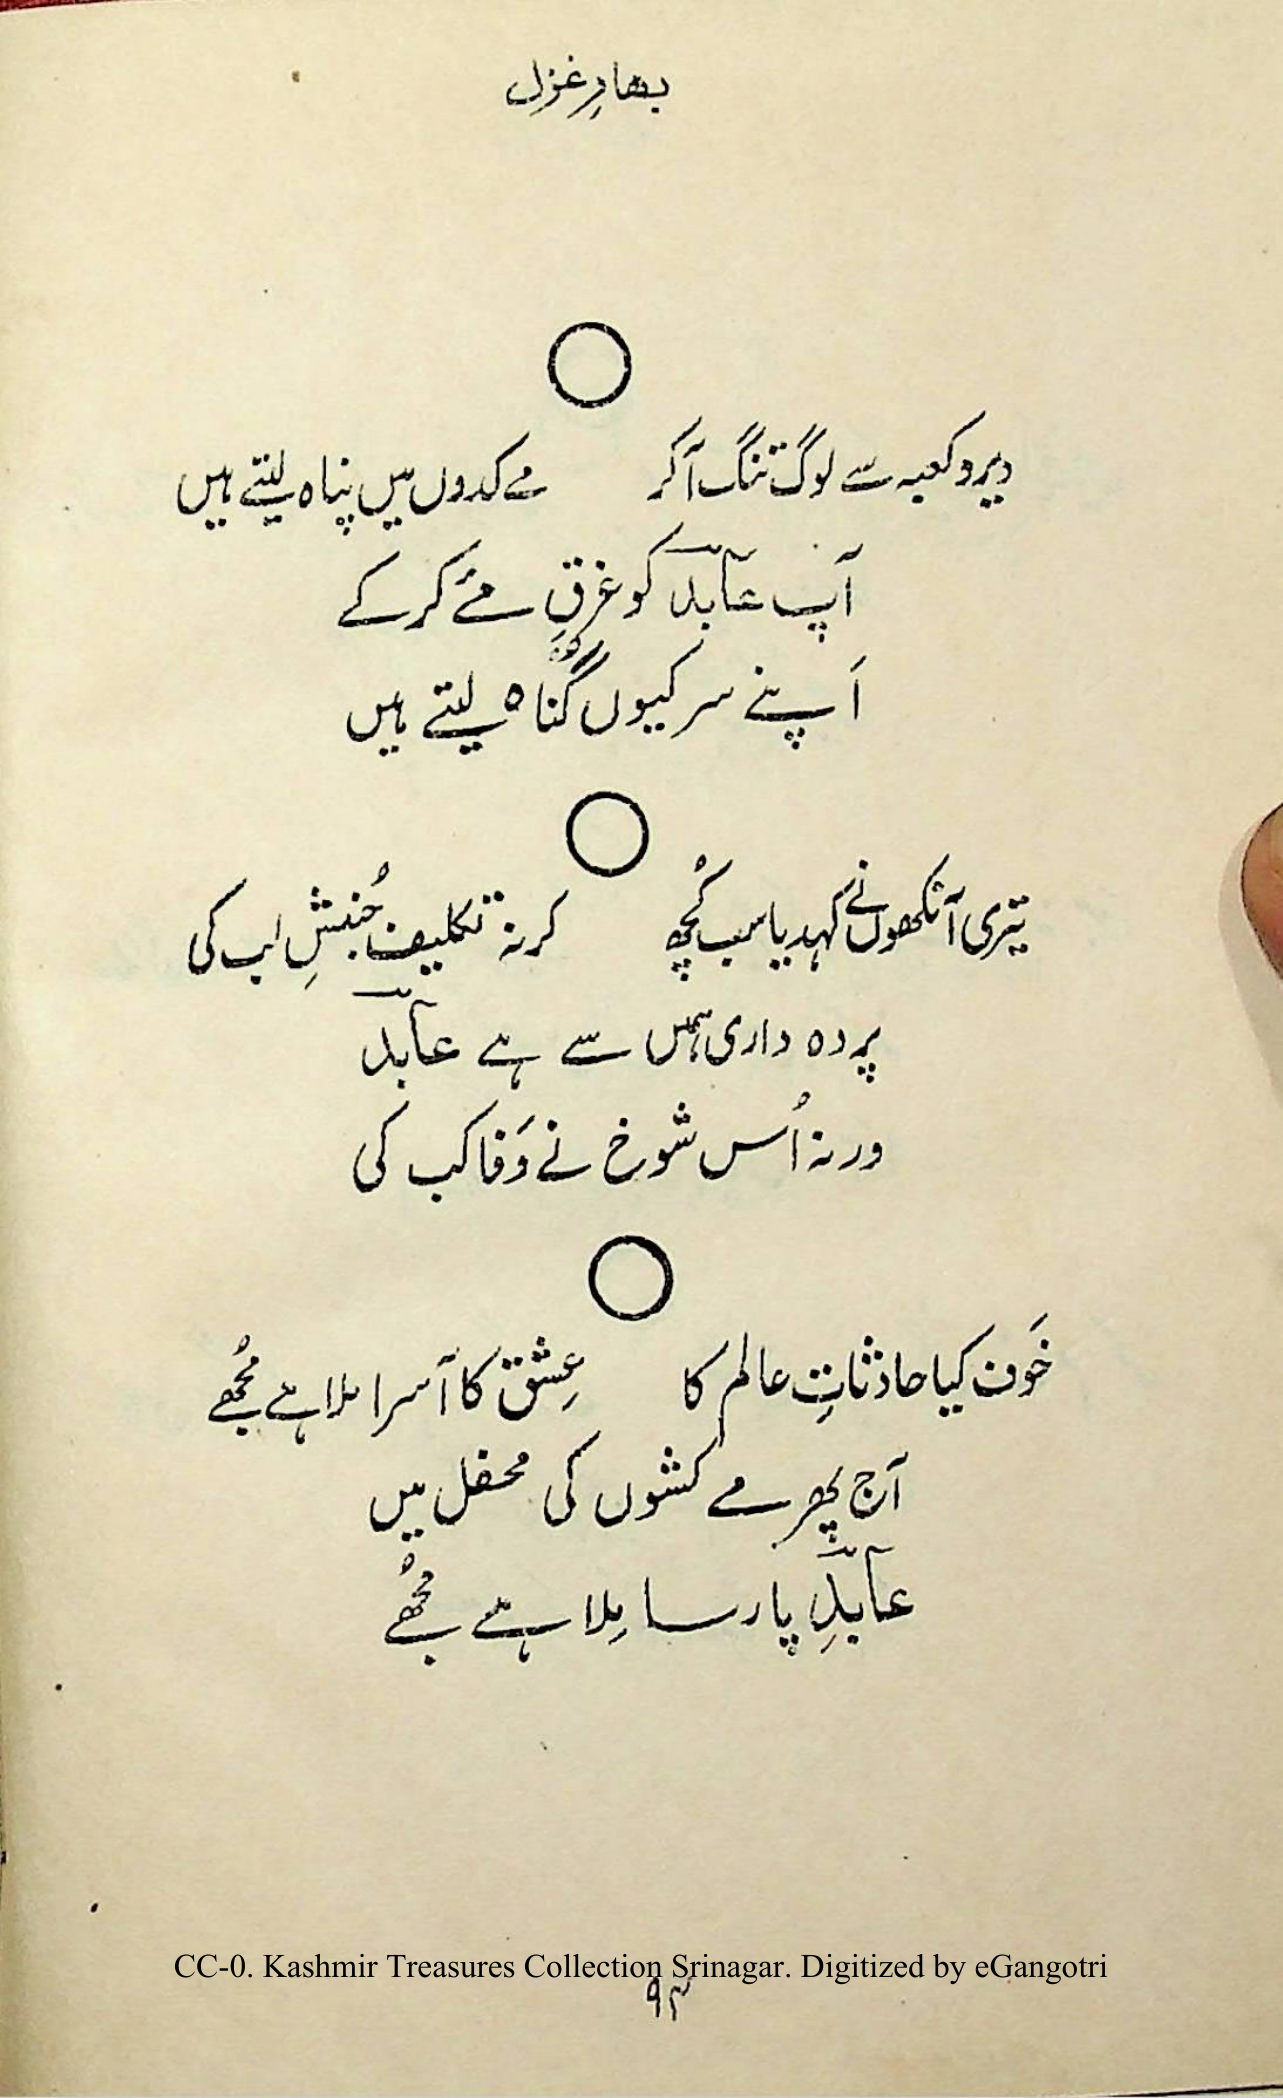 بہارِ غزل
دیر و کعبہ سے لوگ تنگ آکر مے کدوں میں پناہ لیتے ہیں
آپ عابدؔ کو غرقِ مئے کر کے
اَپنے سر کیوں گناہ لیتے ہیں
تیری آنکھوں نے کہدیا سب کُچھ کر نہ تکلیف جُنبشِ لب کی
پردہ داری ہمیں سے ہے عابدؔ
ورنہ اُس شوخ نے وَفا کب کی
خَوف کیا حادثاتِ عالم کا عِشق کا آسرا ملا ہے مُجھے
آج پھر مے کشوں کی محفل میں
عابدِؔ پارسا مِلا ہے مُجھے
CC-0. Kashmir Treasures Collection Srinagar. Digitized by eGangotri
۹۴